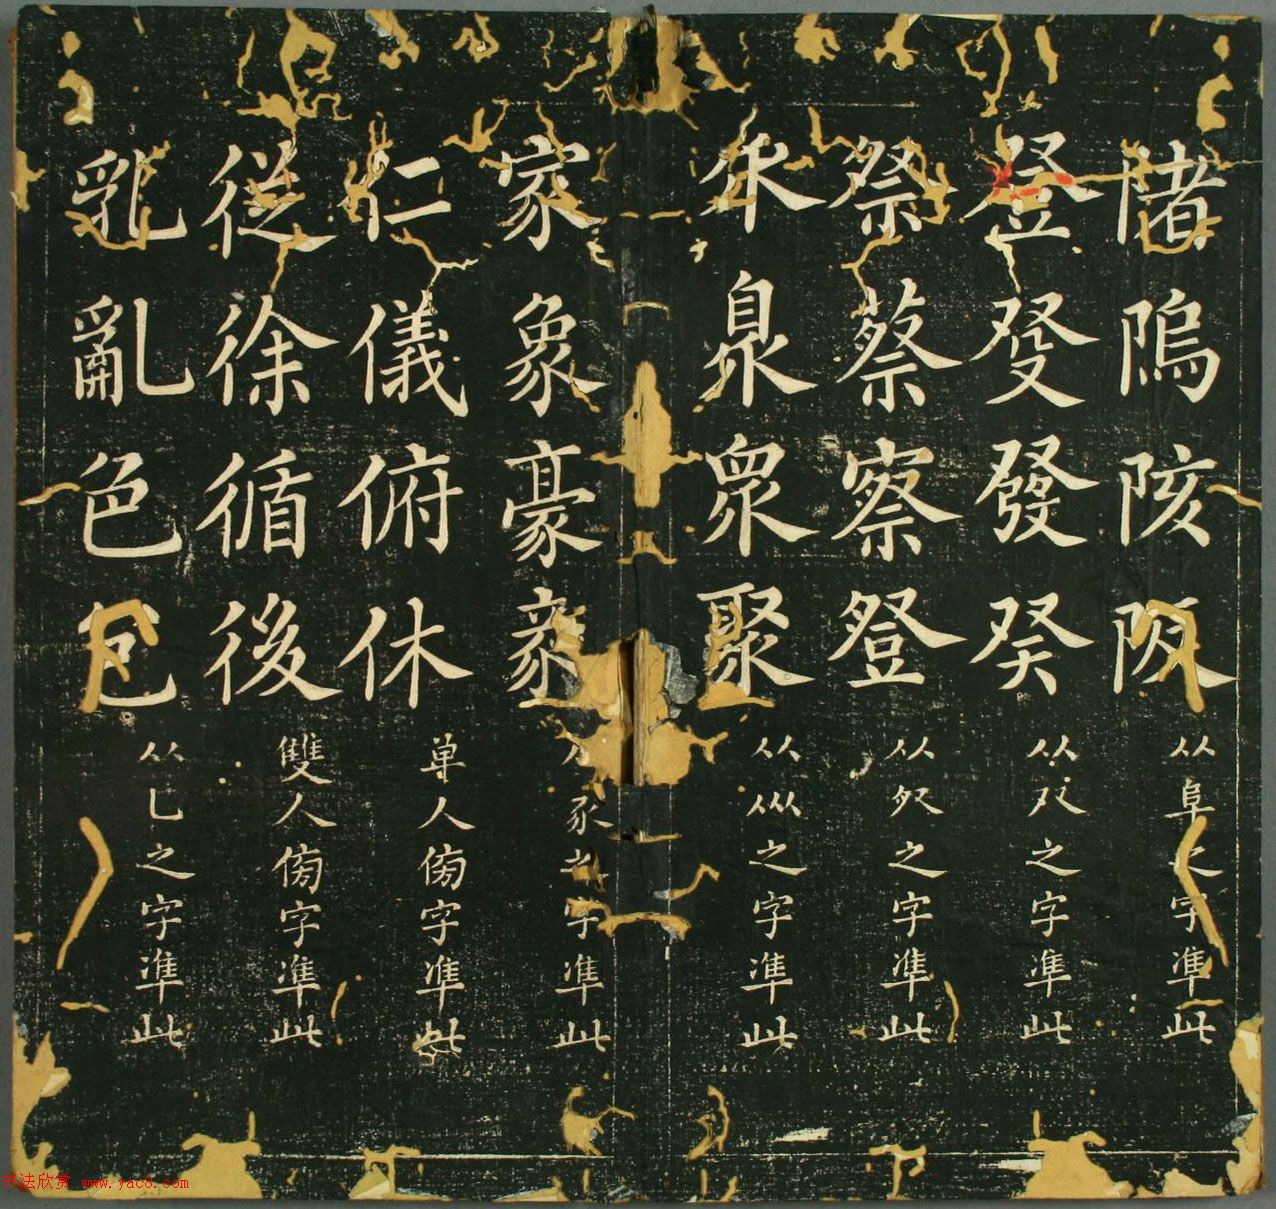 陼隖陔阪从阜之字準此
登癹發癸从癶之字準此
祭蔡察豋从之字準此
乑臮眾聚从乑之字準此
家象豪豙从豕之字準此
仁儀俯休單人傍字準此
從徐循後雙人傍字準此
乳亂色从乚之字準此
书法欣赏 www.yac8.com